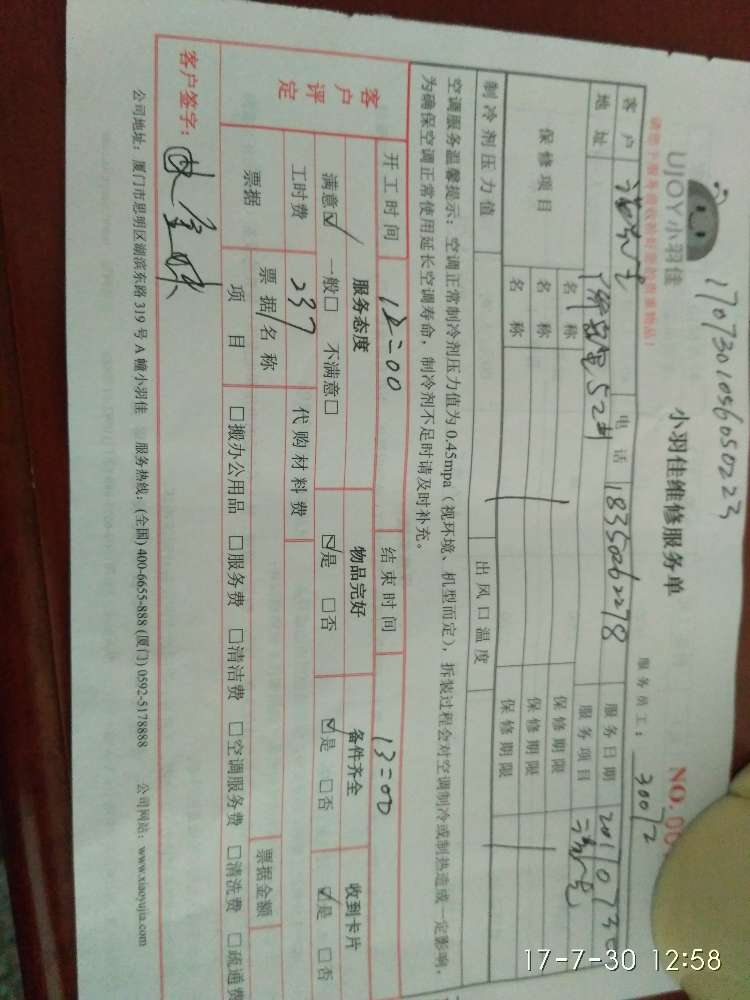 1707301056050223
UJOY小羽佳
小羽佳维修服务单
NO.00
服务员工：30072
请您于服务前收拾好您的贵重物品！
客户
电话 18350262278
服务日期
地址
52#
服务项目
保修项目
名称
保修期限
名称
保修期限
名称
保修期限
制冷剂压力值
出风口温度
空调服务温馨提示：空调正常制冷剂压力值为0.45mpa（视环境、机型而定），拆装过程会对空调制冷或制热造成一定影响，
为确保空调正常使用延长空调寿命，制冷剂不足时请及时补充。
开工时间 12:00 结束时间 13:00
客户评定
服务态度 物品完好 备件齐全 收到卡片
满意☑ 一般□ 不满意□ ☑是 □否 ☑是 □否 ☑是 □否
工时费 237 代购材料费
票据 票据名称 票据金额
项目 □搬办公用品 □服务费 □清洁费 □空调服务费 □清洗费 □疏通费
客户签字：
公司地址：厦门市思明区湖滨东路319号A幢小羽佳 服务热线：(全国)400-6655-888 (厦门)0592-5178888 公司网站：www.xiaoyujia.com
17-7-30 12:58